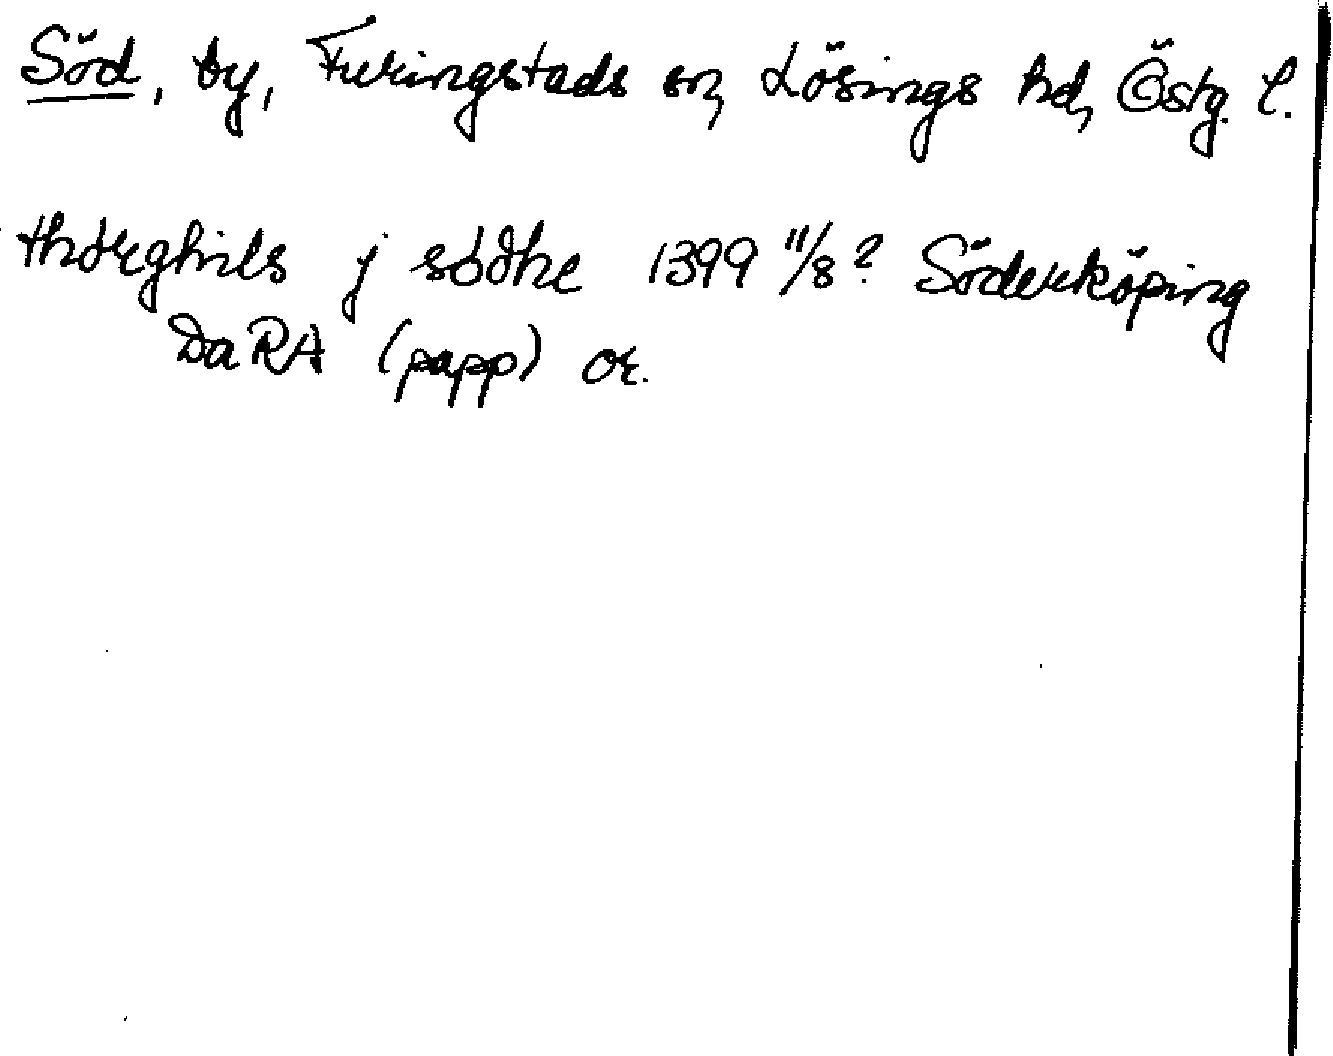 Söd, by, Furingstads sn, Lösings hd, Östg. l.
thórghils j södhe 1399 11/8? Söderköping
DaRA (papp) or.